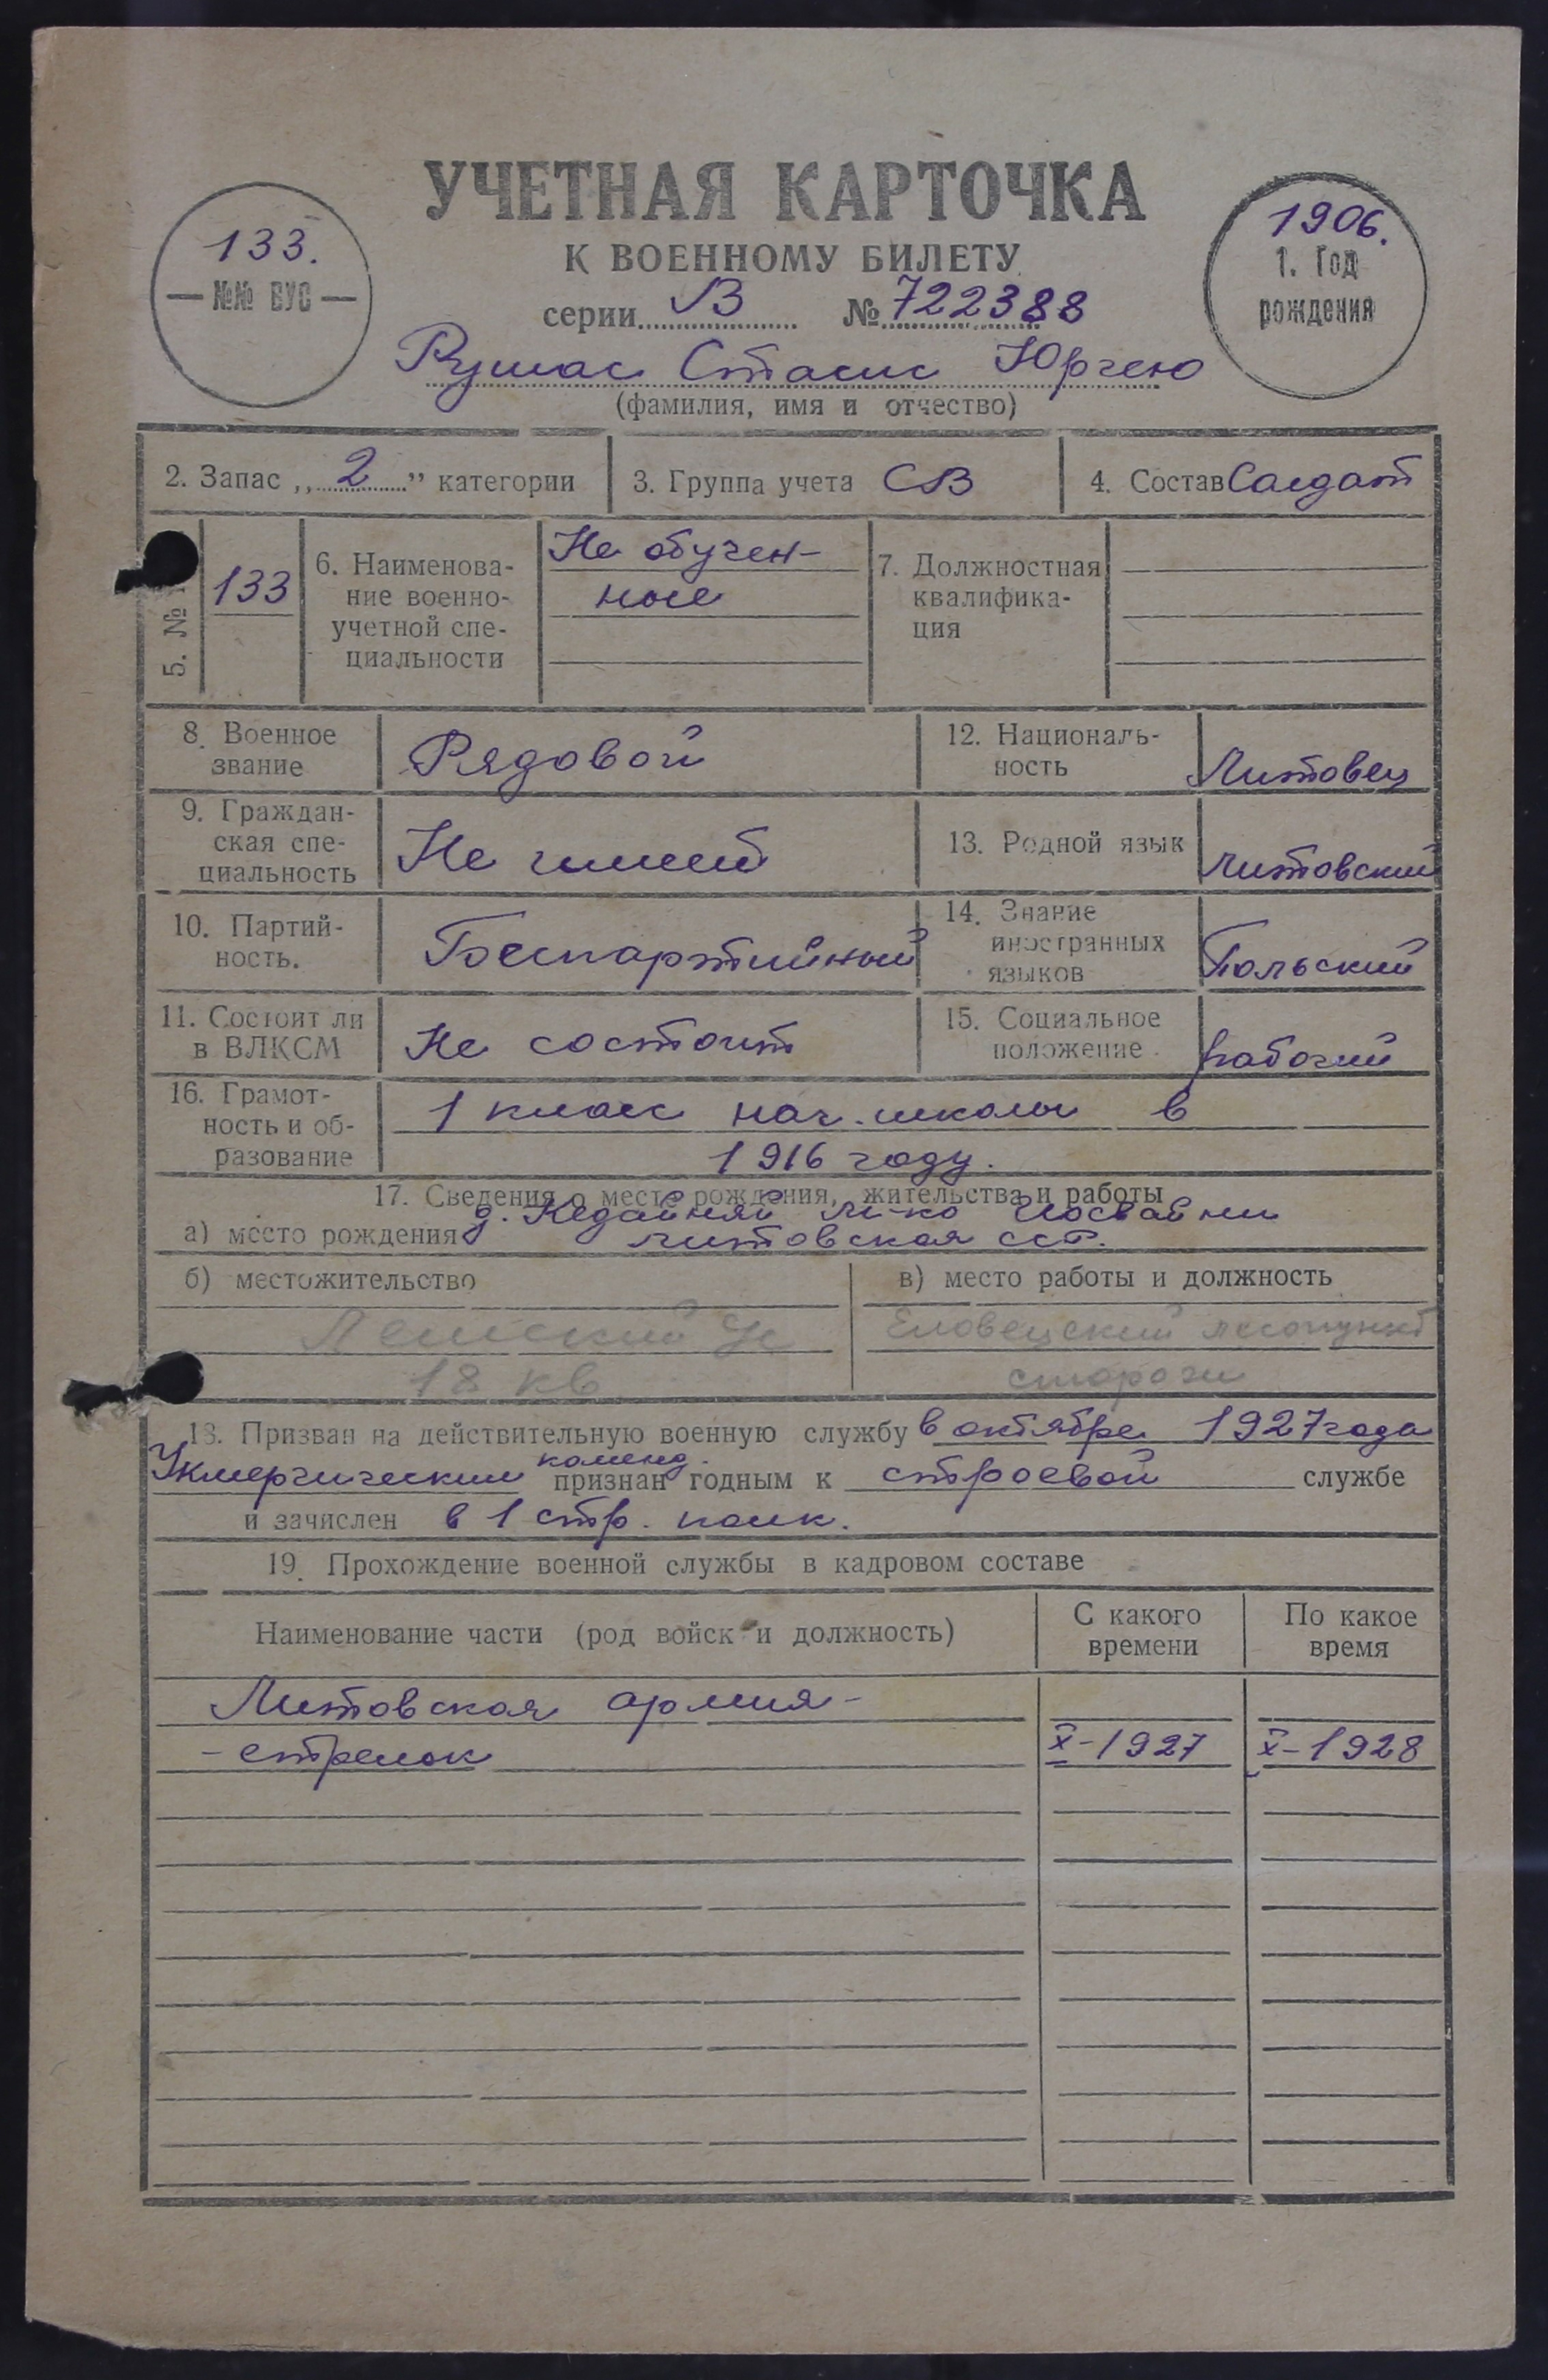 УЧЕТНАЯ КАРТОЧКА
К ВОЕННОМУ БИЛЕТУ
133.
№№ ВУС
1906.
1. Год
рождения
серии В № 722388
Рушас Стасис Юргею
(фамилия, имя и отчество)
2. Запас „2" категории
3. Группа учета СВ
4. Состав Солдат
5. №
133
6. Наименова-
ние военно-
учетной спе-
циальности
Не обучен-
ные
7. Должностная
квалифика-
ция
8. Военное
звание
Рядовой
12. Националь-
ность
Литовец
9. Граждан-
ская спе-
циальность
Не имеет
13. Родной язык
литовский
10. Партий-
ность.
Беспартийный
14. Знание
иностранных
языков
Польский
11. Состоит ли
в ВЛКСМ
Не состоит
15. Социальное
положение
рабочий
16. Грамот-
ность и об-
разование
1 класс нач. школы в
1916 году.
17. Сведения о месте рождения, жительства и работы
а) место рождения д. Кедайняй м-ко Иосвайни
литовская сср.
б) местожительство
18 кв
в) место работы и должность
Еловецский лесопункт
сторож
18. Призван на действительную военную службу в октябре 1927 года
Укмергическим коменд. признан годным к строевой службе
и зачислен в 1 стр. полк.
19. Прохождение военной службы в кадровом составе
Наименование части (род войск и должность)
С какого
времени
По какое
время
Литовская армия-
- стрелок
X-1927
X-1928